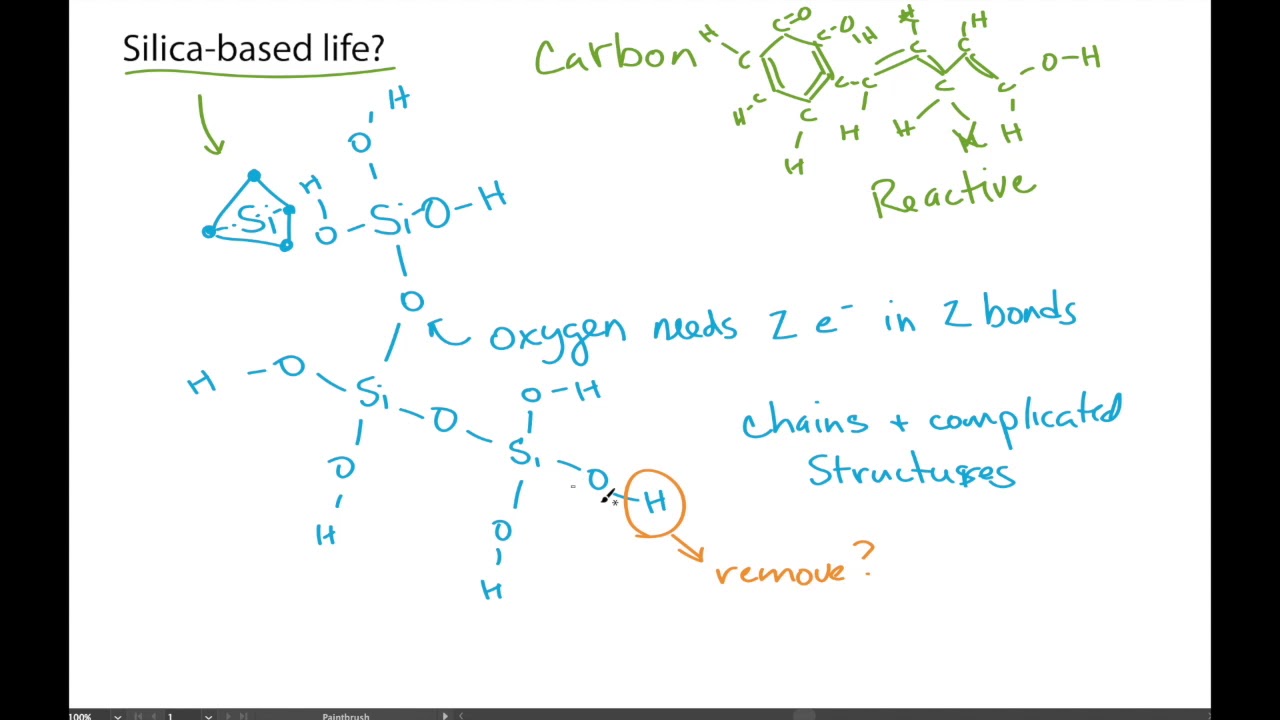 Silica-based life?
Carbon
H C C=O C-O H C H H C H
H-C C C-C C C O-H
H H H H H
Reactive
H
O
H
Si O Si O-H
O
oxygen needs 2 e⁻ in 2 bonds
H -O Si O Si O-H
chains + complicated
structures
O H
O O
H H
remove?
100% 1 Paintbrush